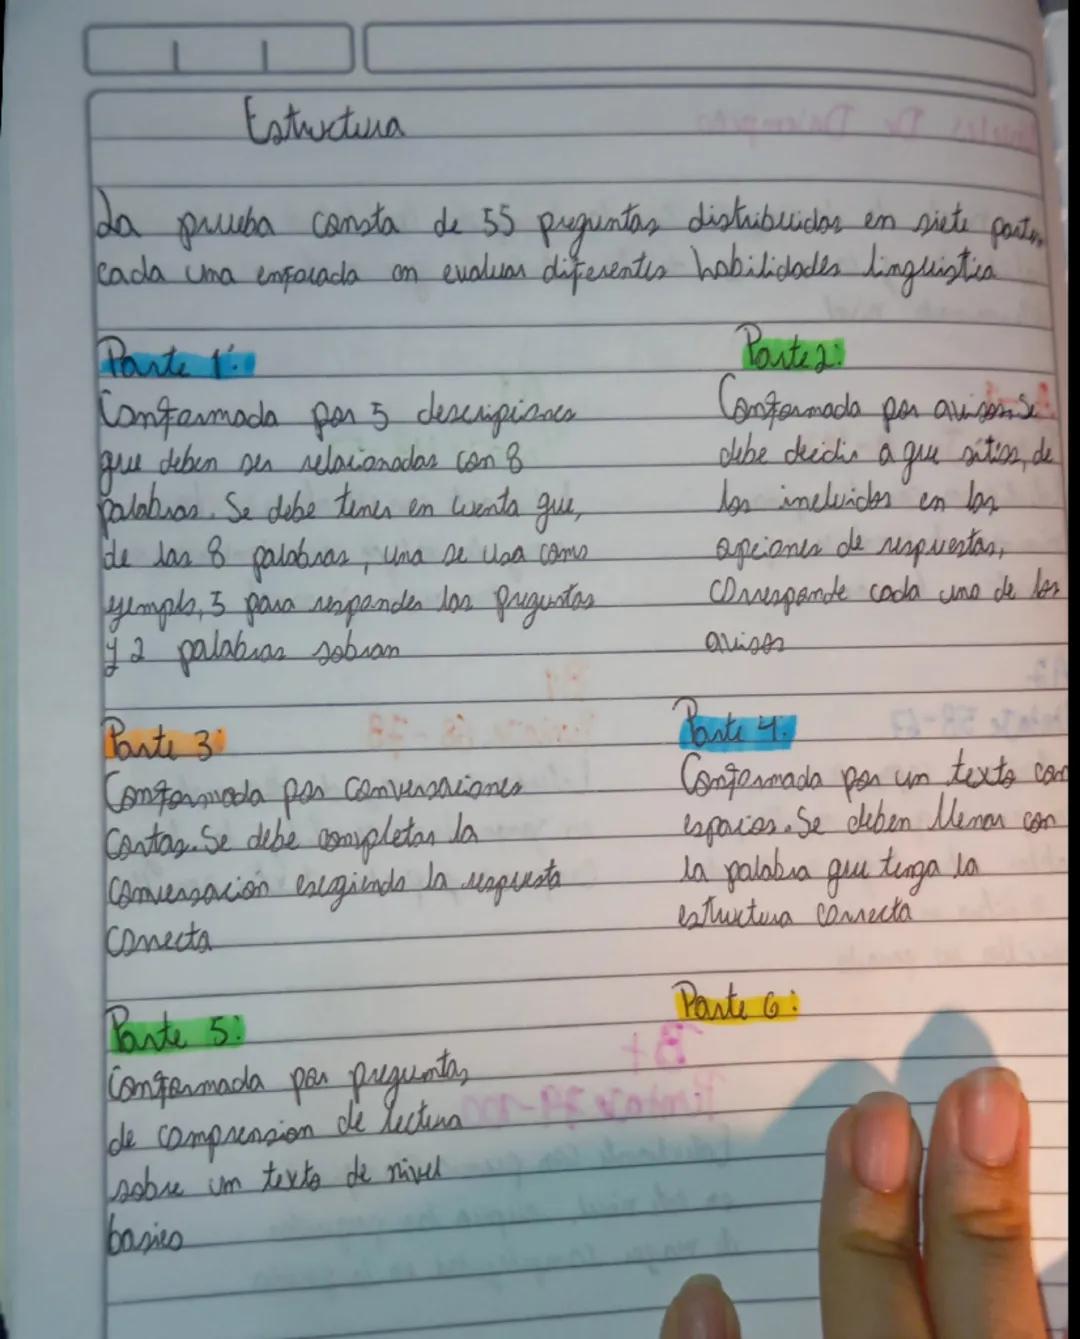 Estructura
La prueba consta de 55 preguntas distribuidas en siete partes,
cada una enfocada en evaluar diferentes habilidades linguistica
Parte 1:
Conformada por 5 descripciones
que deben ser relacionadas con 8
palabras. Se debe tener en cuenta que,
de las 8 palabras, una se usa como
ejemplo, 5 para responder las preguntas
y 2 palabras sobran
Parte 2:
Conformada por avisos. Se
debe decidir a que sitios, de
los incluidos en las
opciones de respuestas,
Corresponde cada uno de los
avisos
Parte 3:
Conformada por conversaciones
Cortas. Se debe completar la
Conversación escogiendo la respuesta
Correcta
Parte 4:
Conformada por un texto con
espacios. Se deben llenar con
la palabra que tenga la
estructura correcta
Parte 5:
Conformada por preguntas,
de comprension de lectura
sobre un texto de nivel
basico
Parte 6: